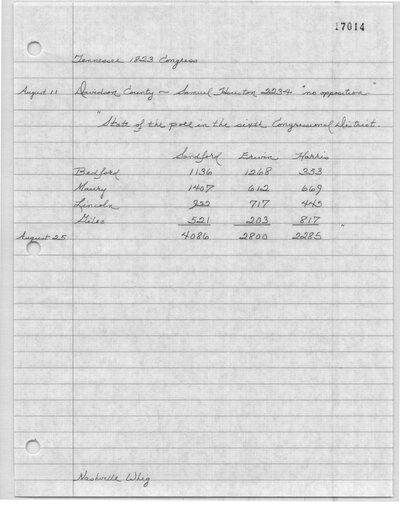 17014
Tennessee 1823 Congress
August 11 Davidson County - Samuel Houston 2234 "no opposition"
"State of the poll in the sixth Congressional District.
Sandford Erwin Harris
Bedford 1136 1268 353
Maury 1407 612 669
Lincoln 922 717 445
Giles 521 203 817
August 25 4086 2800 2285 "
Nashville Whig